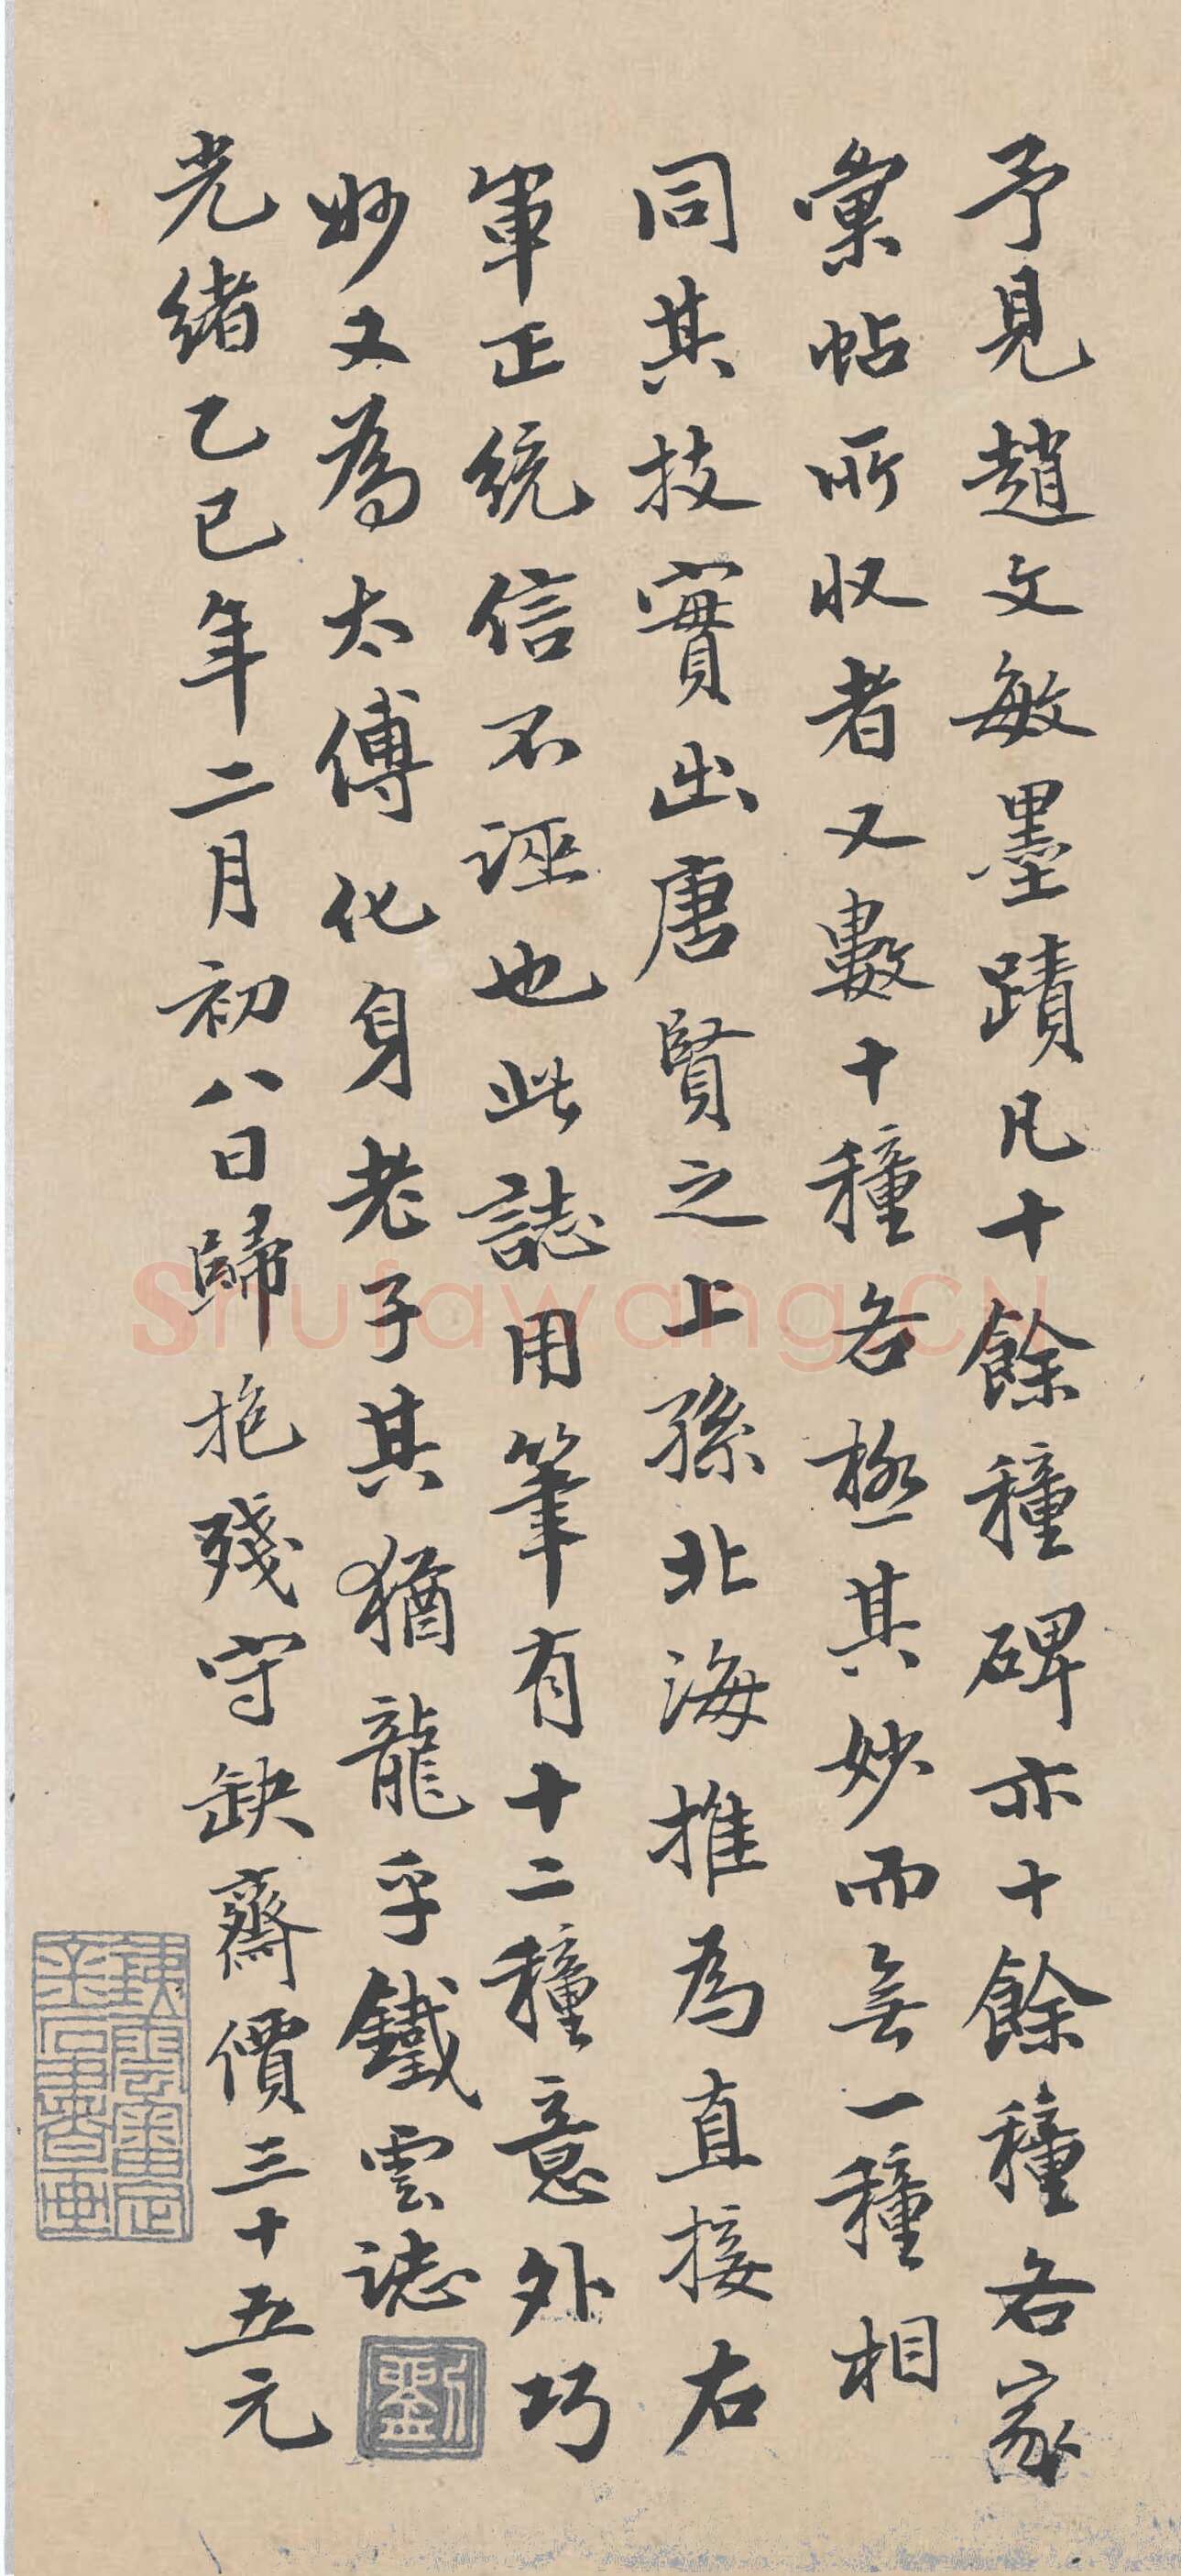 予見趙文敏墨蹟凡十餘種碑亦十餘種各家
彙帖所收者又數十種各極其妙而無一種相
同其技實出唐賢之上孫北海推為直接右
軍正統信不誣也此誌用筆有十二種意外巧
妙又為太傅化身老子其猶龍乎鐵雲誌
劉
光緒乙巳年二月初八日歸抱殘守缺齋價三十五元
鐵雲審定
金石書畫
Shufawang.CN